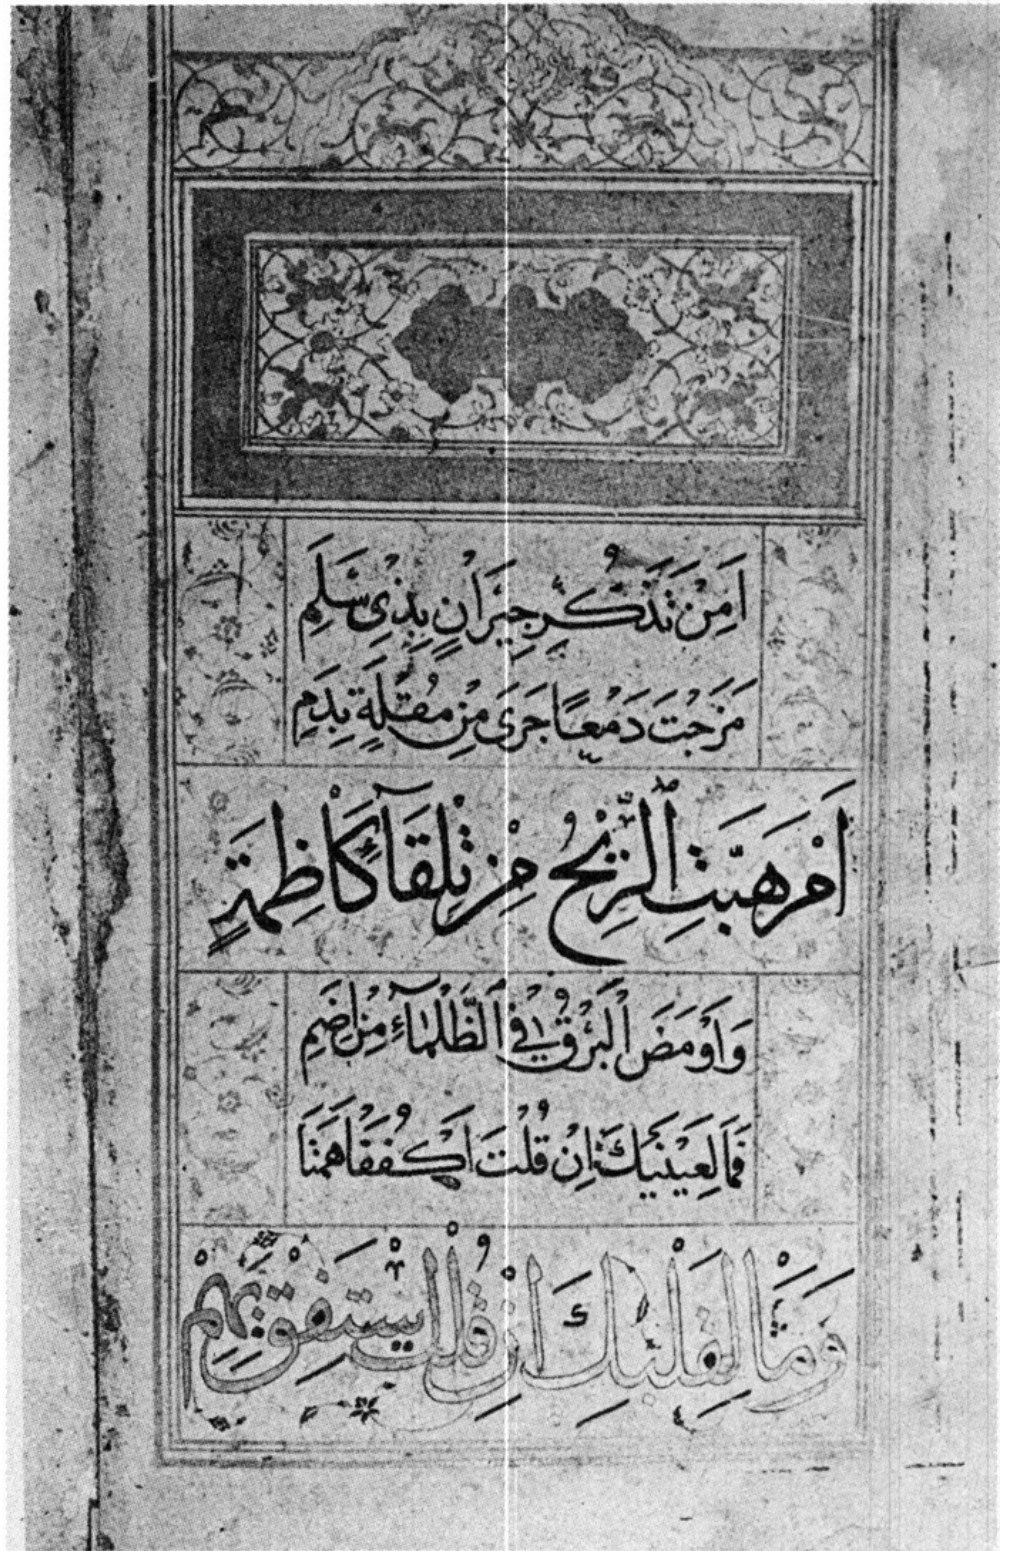 اَمِنْ تَذَكُّرِ جِيْرَانٍ بِذِيْ سَلَمِ
مَزَجْتَ دَمْعًا جَرَى مِنْ مُقْلَةٍ بِدَمِ
اَمْ هَبَّتِ الرِّيْحُ مِنْ تِلْقَآءِ كَاظِمَةٍ
وَاَوْمَضَ الْبَرْقُ فِي الظَّلْمَآءِ مِنْ اِضَمِ
فَمَا لِعَيْنَيْكَ اِنْ قُلْتَ اكْفُفَا هَمَتَا
وَمَا لِقَلْبِكَ اِنْ قُلْتَ اسْتَفِقْ يَهِمْ